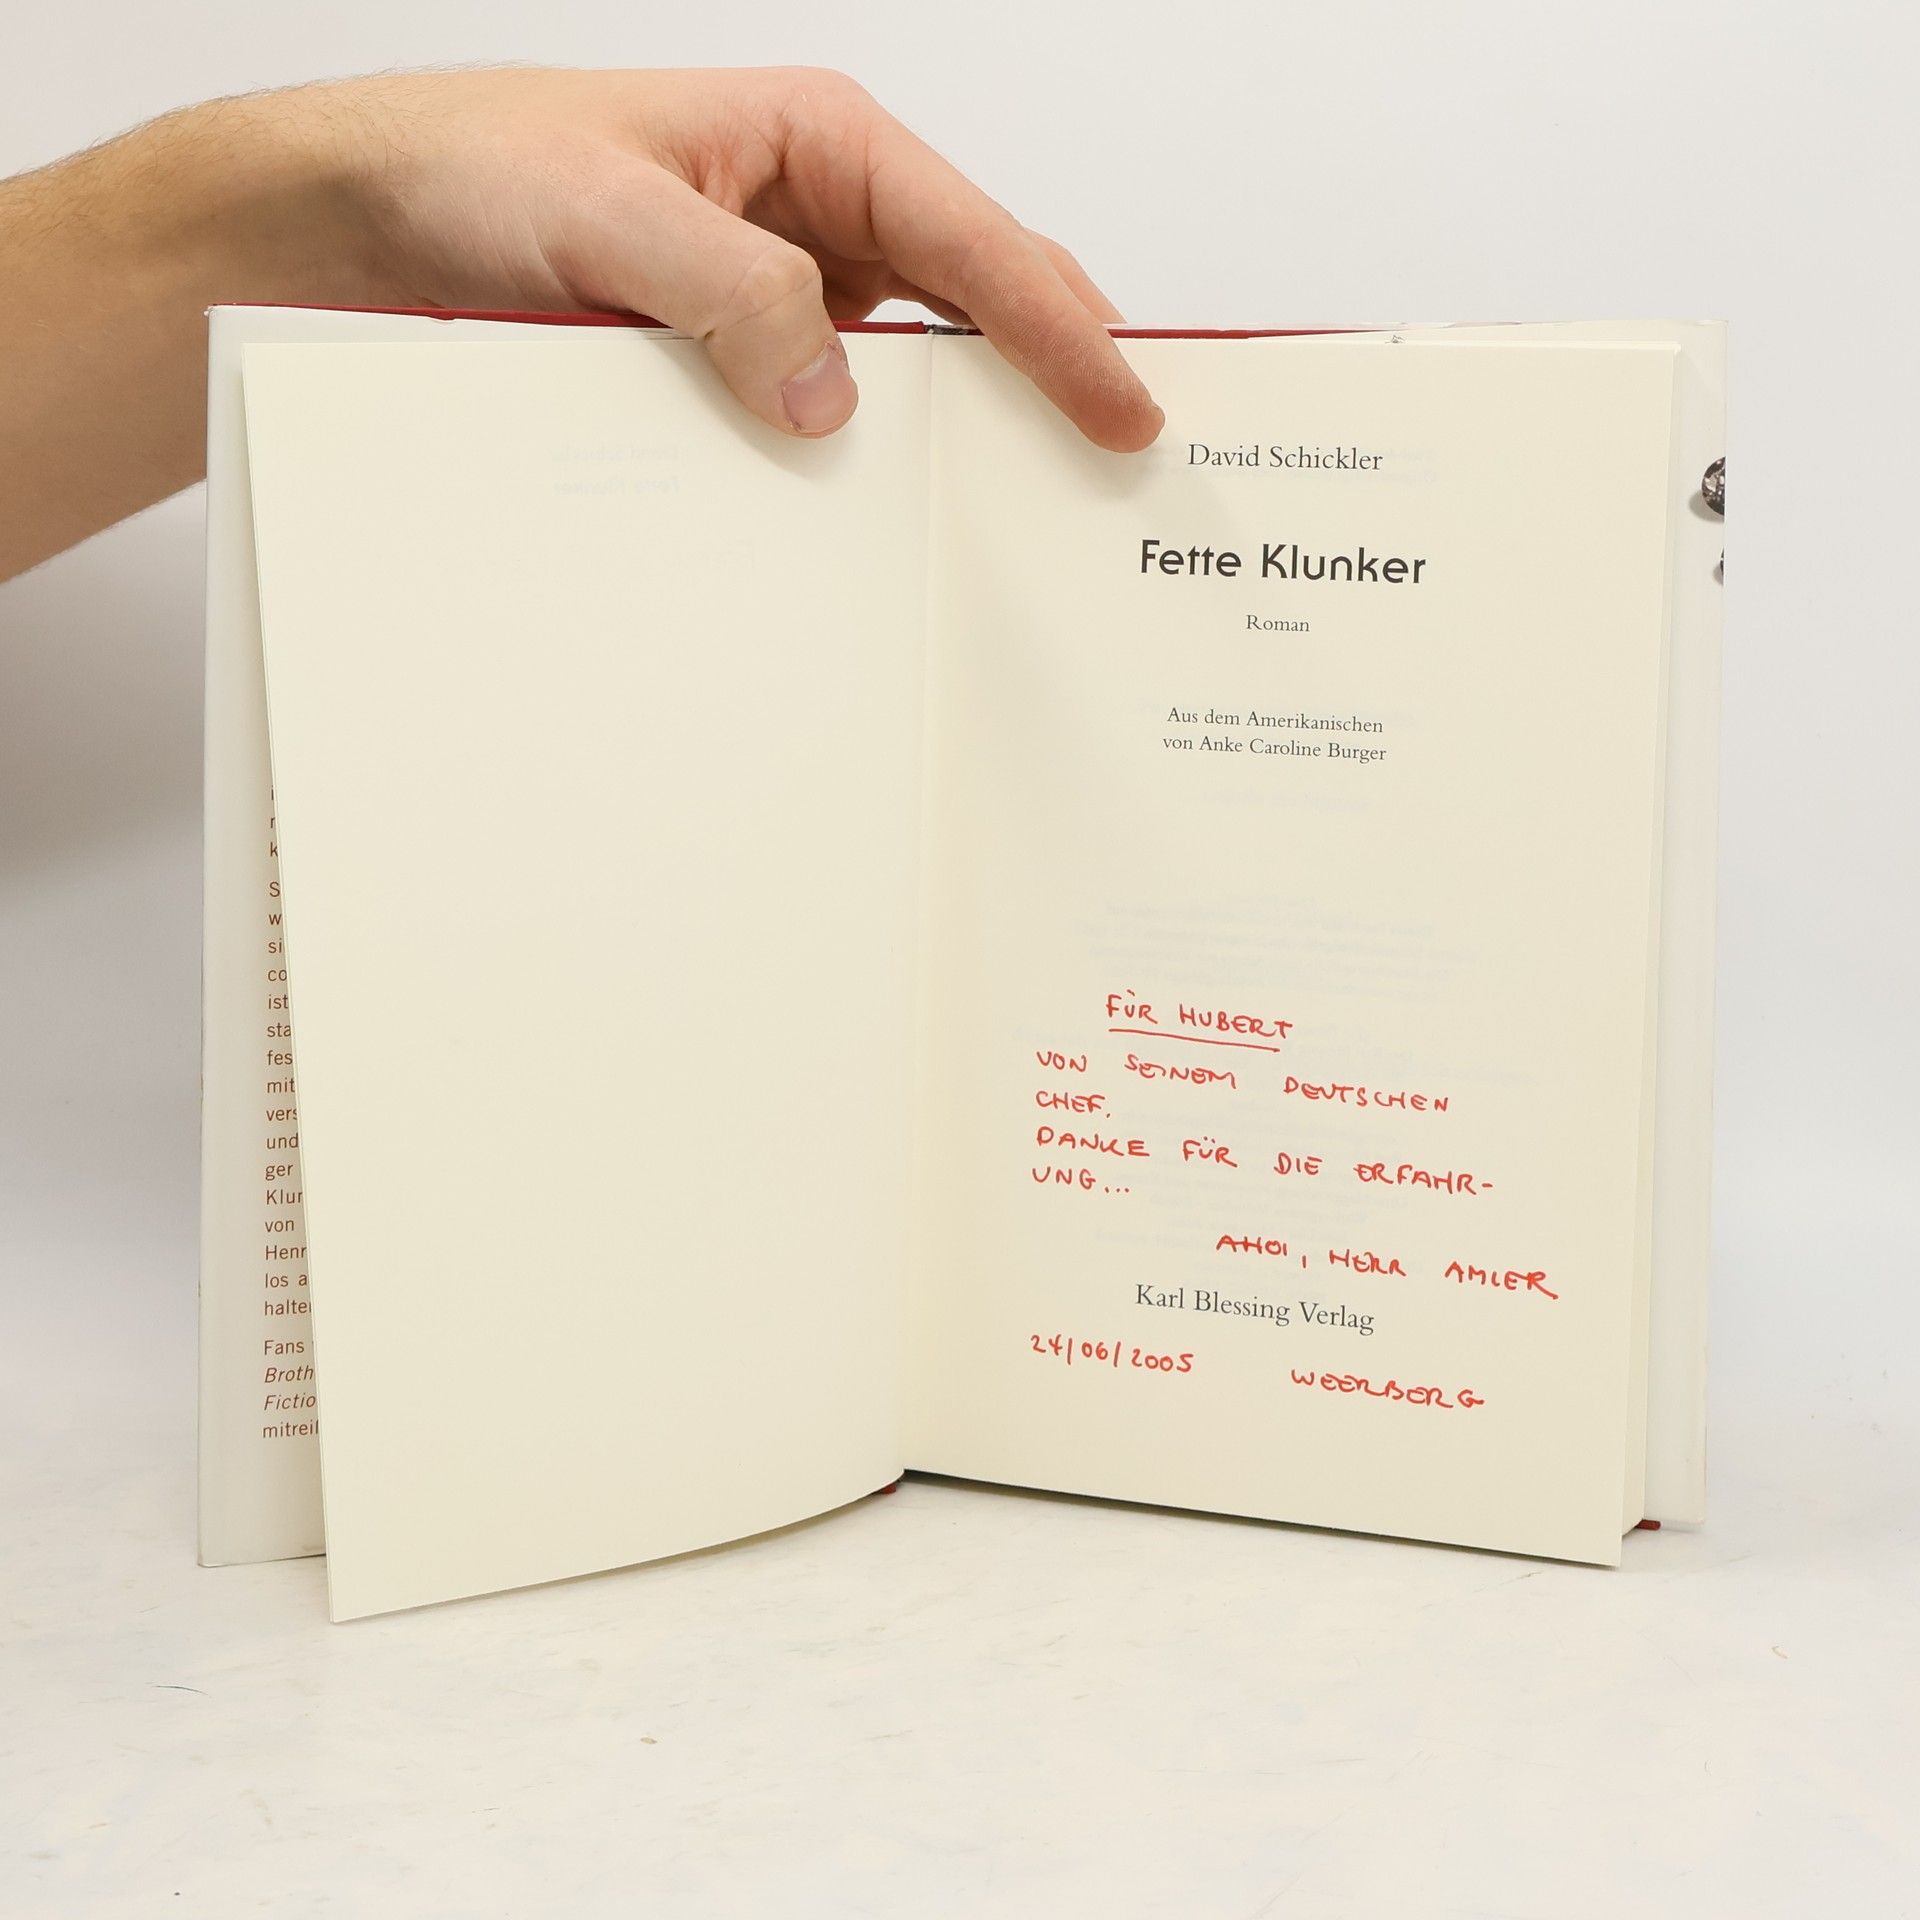 i
r
k
S
w
si
co
ist
sta
fes
mit
vers
und
ger
Klun
von
Henr
los a
halten
Fans
Broth
Fictio
mitreiß
David Schickler
Fette Klunker
Roman
Aus dem Amerikanischen
von Anke Caroline Burger
FÜR HUBERT
VON SEINEM DEUTSCHEN
CHEF.
DANKE FÜR DIE ERFAHR-
UNG...
AHOI, HERR AMLER
Karl Blessing Verlag
24/06/2005 WEERBERG